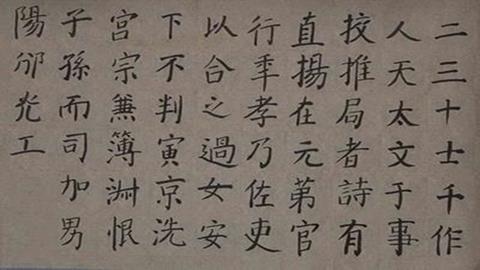 二三十士千作
人天太文于事
推局者詩有
直揚在元第官
行秊孝乃佐吏
以合之過女安
下不判寅京洗
宫宗簿恨
子孫而司加男
陽光工